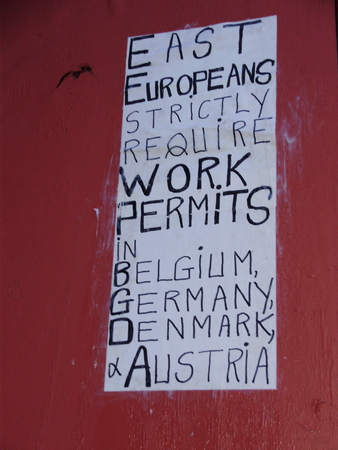 EAST
EUROPEANS
STRICTLY
REQUIRE
WORK
PERMiTS
iN
BELGiUM,
GERMANY,
DENMARK,
& AUSTRiA